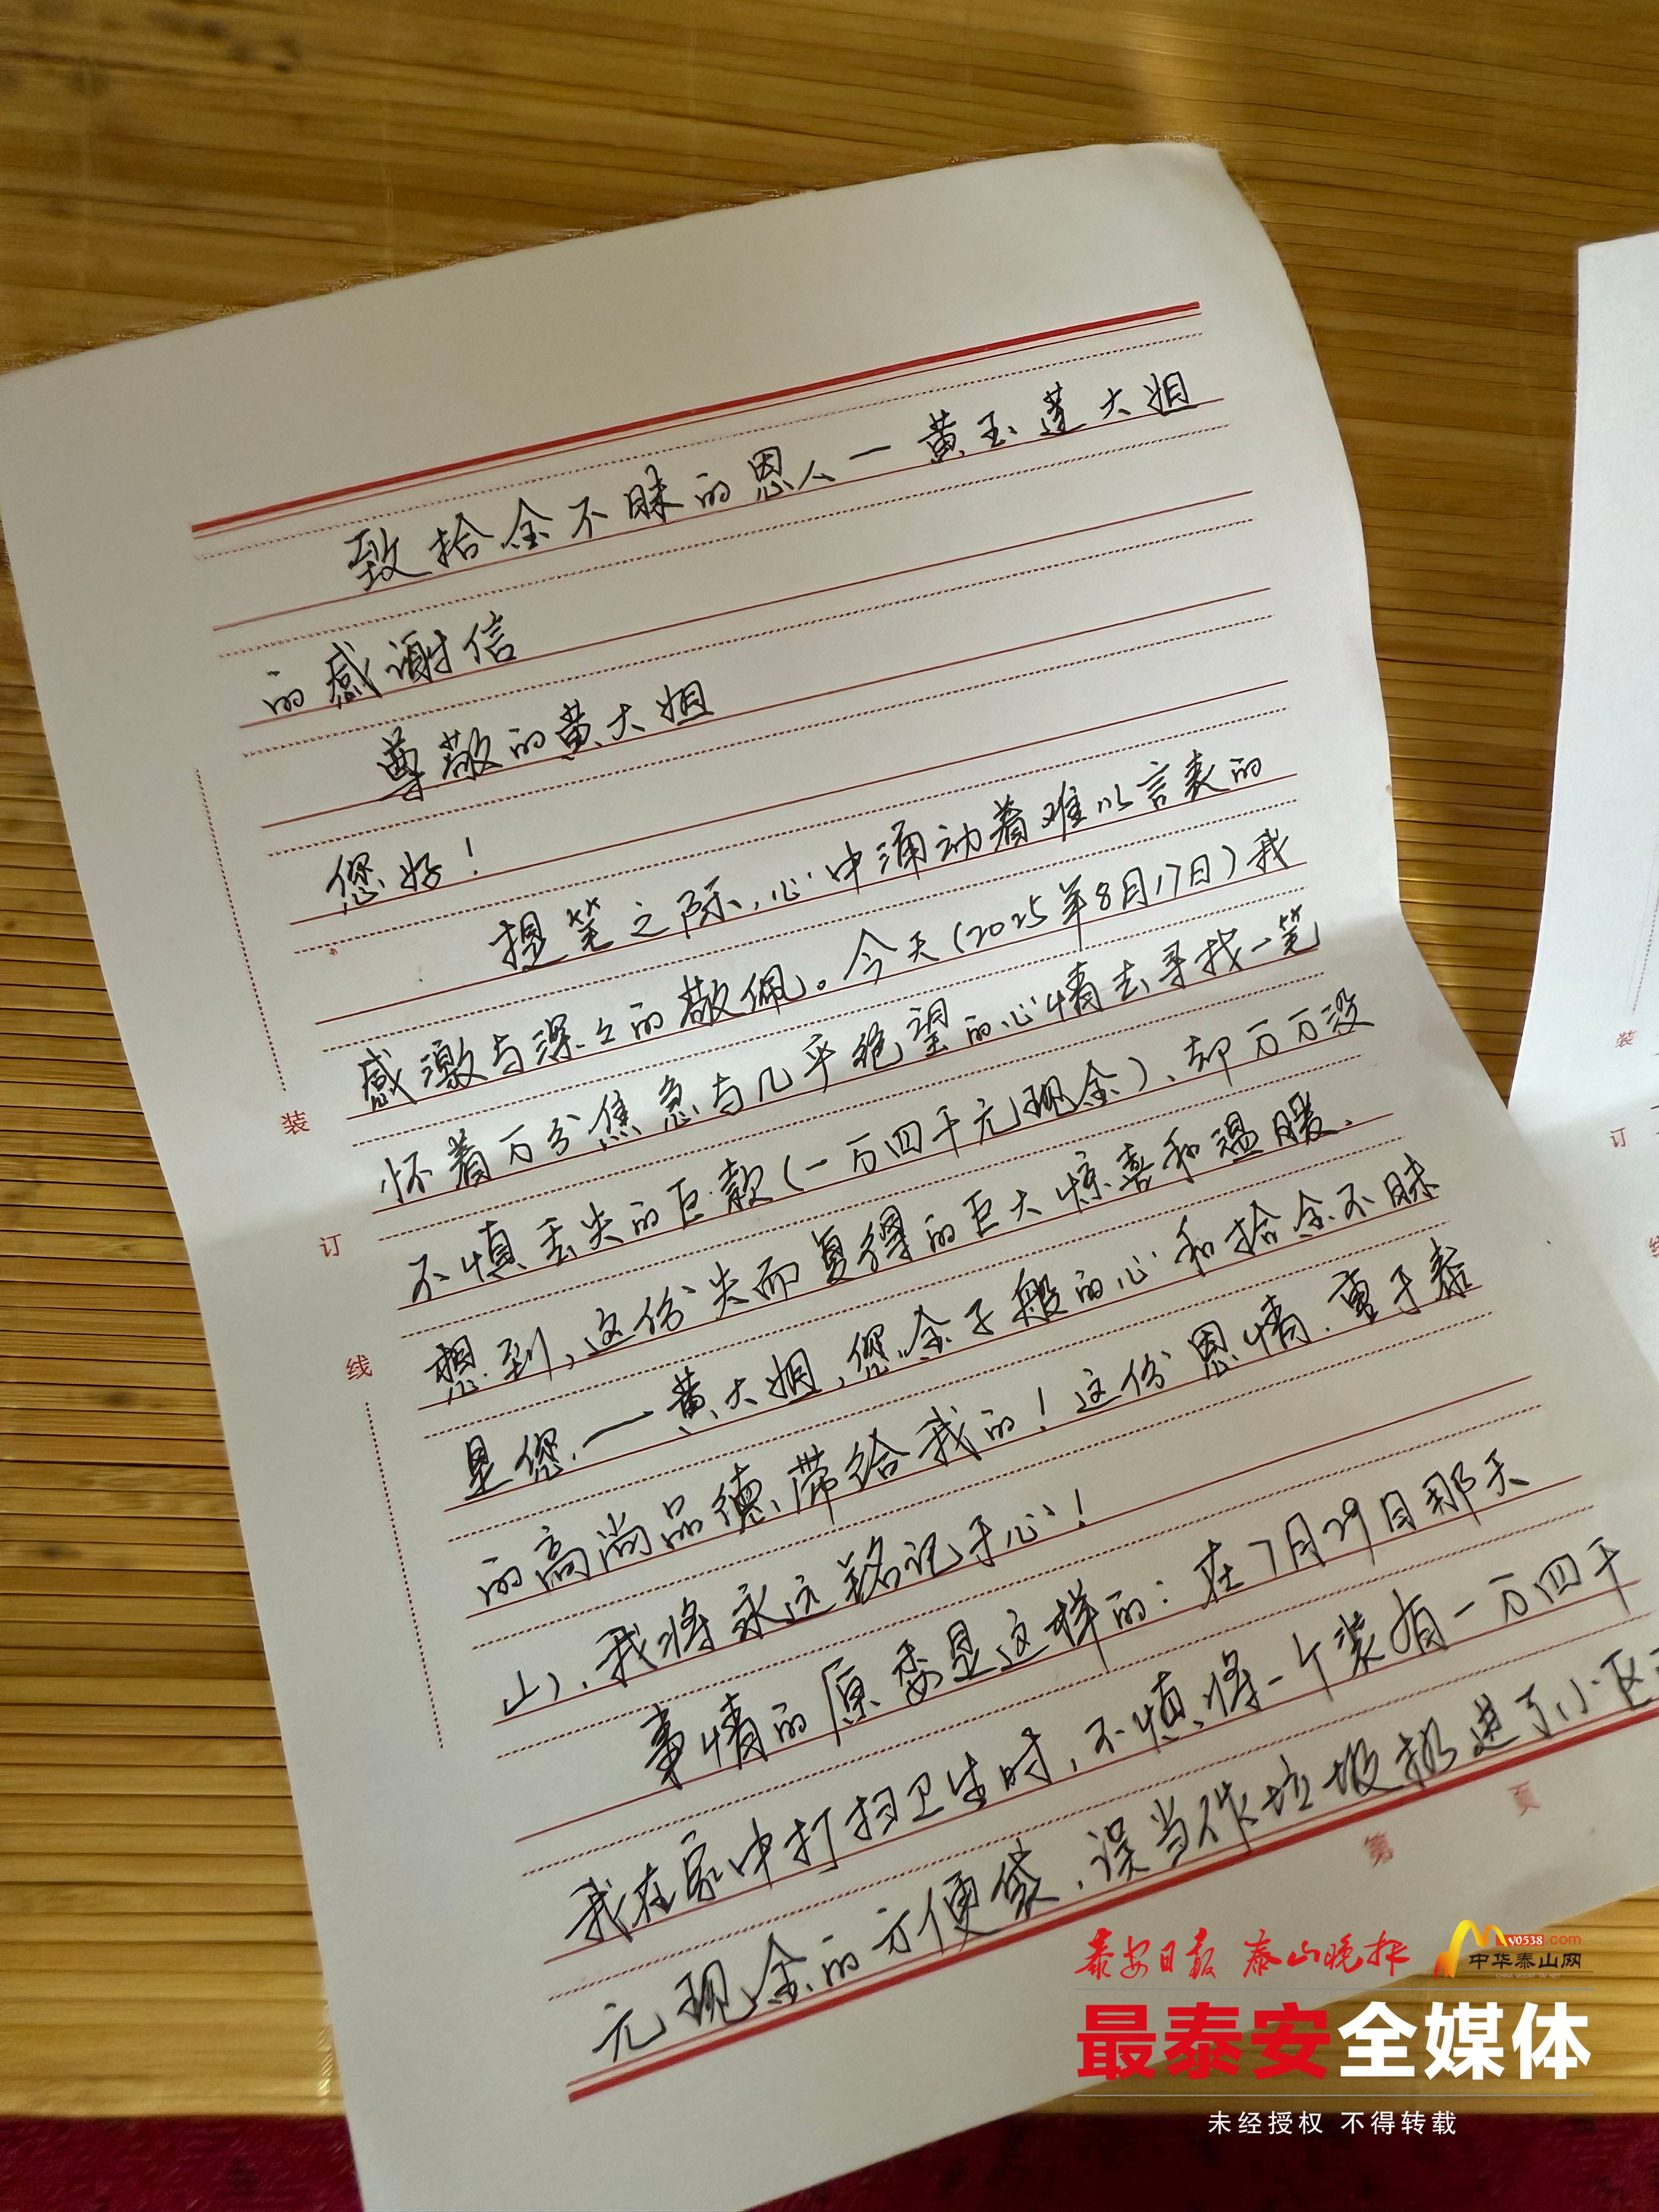 致拾金不昧的恩人一黄玉莲大姐
的感谢信
尊敬的黄大姐
您好！
提笔之际,心中涌动着难以言表的
感激与深々的敬佩。今天(2025年8月17日)我
怀着万分焦急与几乎绝望的心情去寻找一笔
不慎丢失的巨款(一万四千元现金)、却万万没
想到,这份失而复得的巨大惊喜和温暖、
是您一黄大姐,您金子般的心和拾金不昧
的高尚品德、带给我的！这份恩情.重于泰
山、我将永远铭记于心！
事情的原委是这样的：在7月29日那天
我在家中打扫卫生时,不慎将一个装有一万四千
元现金的方便袋、误当作垃圾扔进了小区
装
订
线
第 页
装
订
泰安日报 泰山晚报
my0538.com
中华泰山网
CHINA MOUNT TAI NET
最泰安全媒体
未经授权 不得转载